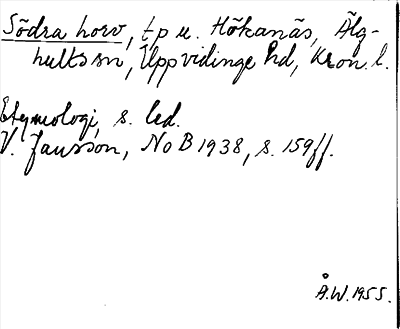 Södra horv, t p u. Hökanäs, Älg-
hults sn, Uppvidinge hd, Kron. l.
Etymologi, s. led.
V. Jansson, NoB 1938, s. 159 ff.
Å.W. 1955.